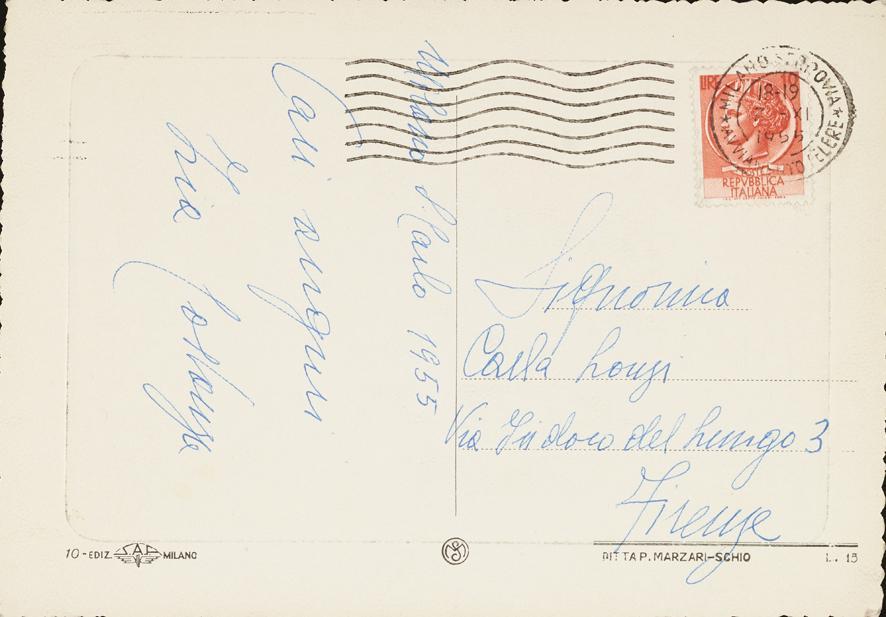 Milano S. Carlo 1955
Cari auguri
Zia Costanza
LIRE 10
REPVBBLICA
ITALIANA
MILANO FERROVIA
18-19
XI
1955
Signorina
Carla Lonzi
Via Isidoro del Lungo 3
Firenze
10-EDIZ. SAF MILANO
DITTA P. MARZARI-SCHIO
L. 15